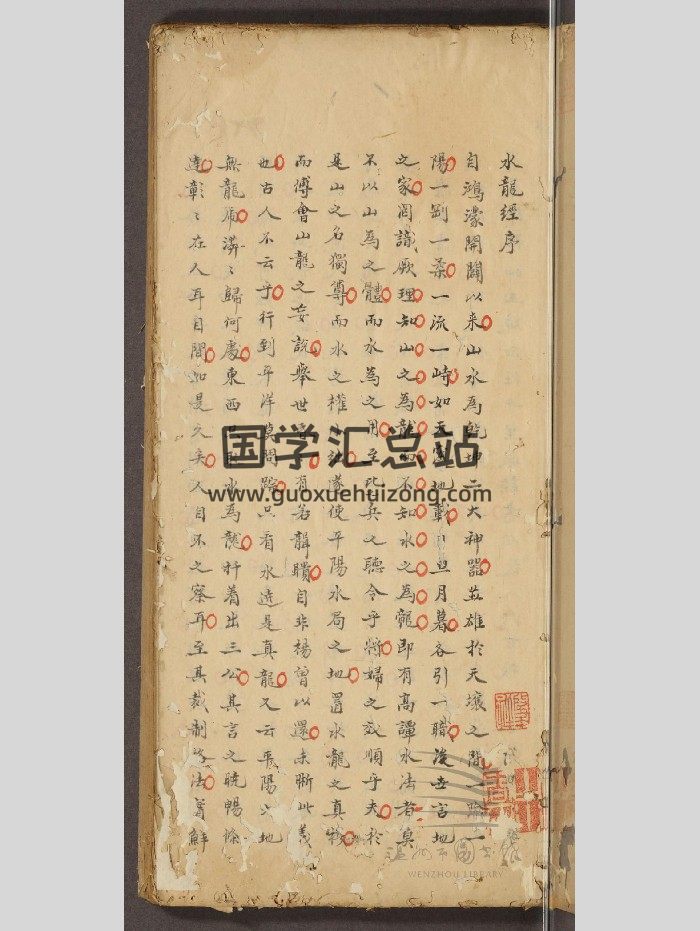 水龍經序
自鴻濛開闢以来山水為乾坤二大神器並雄於天壤之間一陰一
陽一剛一柔一流一峙如天覆地載日旦月暮各引一職後世言地
之家罔識厥理知山之為龍而不知水之為龍即有高譚水法者莫
不以山為之體而水為之用至比兵之聽令乎將婦之效順乎夫於
是山之名獨尊而水之權少 遂使平陽水局之地罝水龍之真物
而傅會山龍之妄說舉世皆 有若聾瞶自非楊曾以還未晰此義
也古人不云乎行到平洋莫問踪只看水遶是真龍又云平陽大地
無龍虎漭〻歸何處東西只取水為龍扦着出三公其言之晓暢條
達彰〻在人耳目間如是久矣人自不之察耳至其裁制之法蓄鮮
国学汇总站
www.guoxuehuizong.com
温州市图书馆
WENZHOU LIBRARY